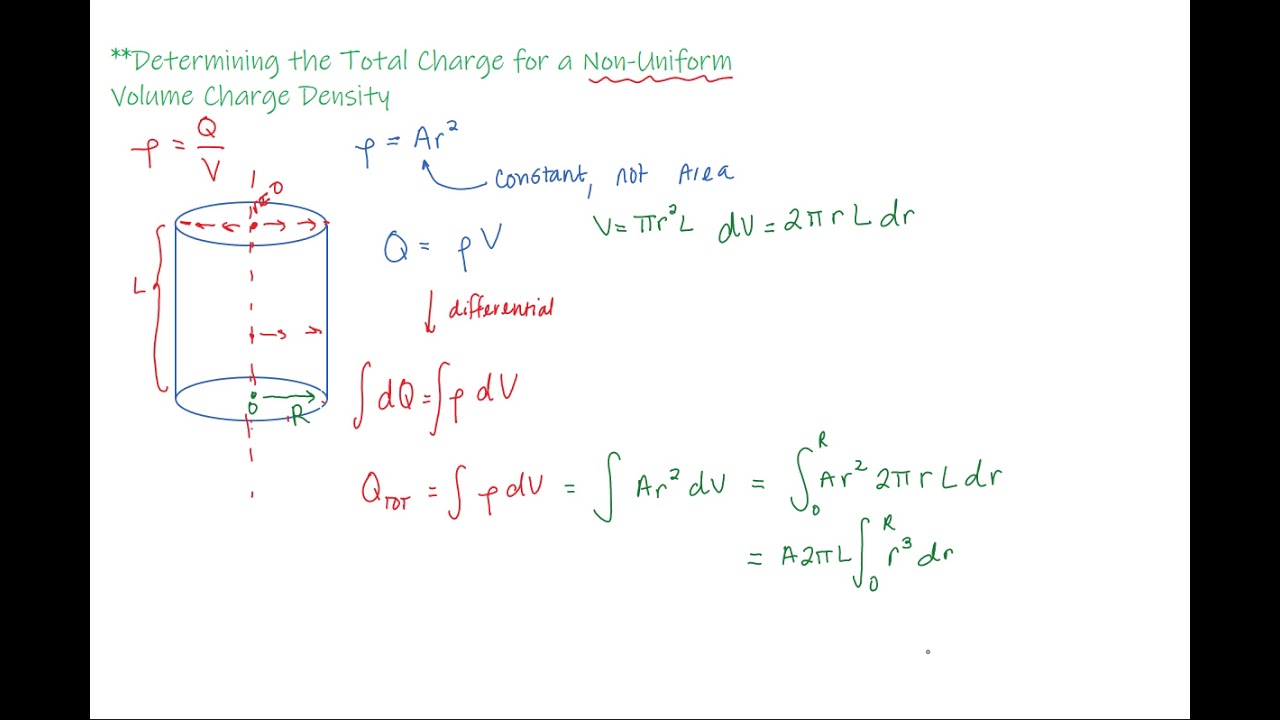 **Determining the Total Charge for a Non-Uniform
Volume Charge Density
ρ = Q/V
ρ = Ar²
Constant, not Area
V = πr²L dV = 2πr L dr
Q = ρV
↓ differential
L
0
R
∫dQ = ∫ρ dV
Q_TOT = ∫ρdV = ∫Ar² dV = ∫₀ᴿ Ar² 2πr L dr
= A2πL ∫₀ᴿ r³ dr